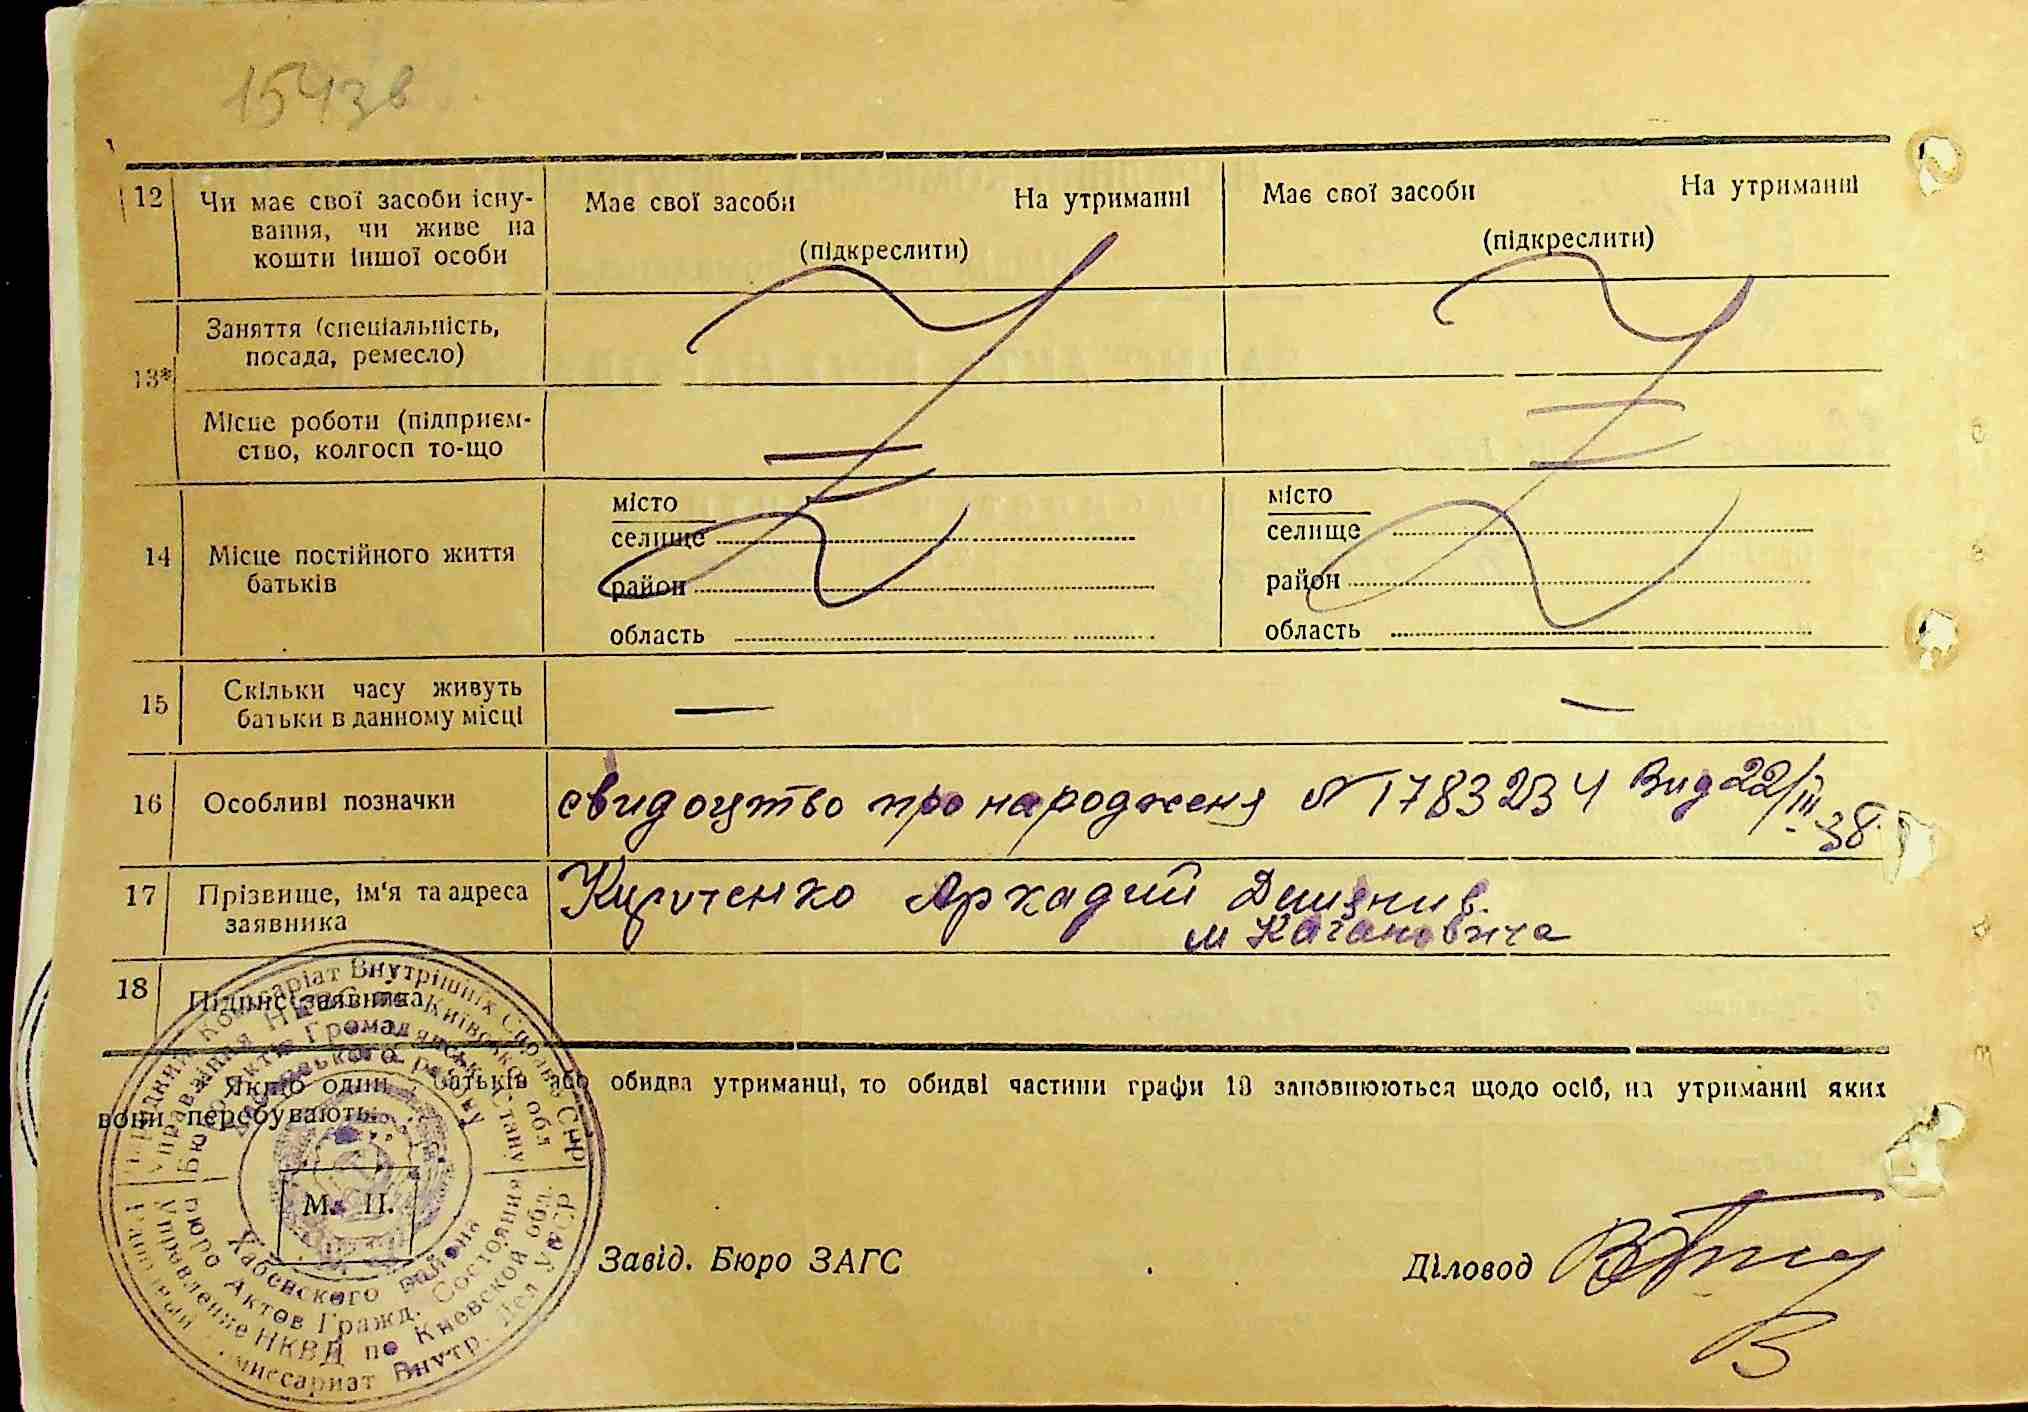 1543в
12 Чи має свої засоби існу-
вання, чи живе на
кошти іншої особи
Має свої засоби На утриманні
(підкреслити)
Має свої засоби На утриманні
(підкреслити)
13*
Заняття (спеціальність,
посада, ремесло)
Місце роботи (підприєм-
ство, колгосп то-що
14 Місце постійного життя
батьків
місто
селище
район
область
місто
селище
район
область
15 Скільки часу живуть
батьки в данному місці
— —
16 Особливі позначки
свидоцтво про народженя № 1783234 Вид 22/III 38
17 Прізвище, ім'я та адреса
заявника
Аркадий
м Кагановича
18 Підпис заявника
Якщо один батьків або обидва утриманці, то обидві частини графи 13 заповнюються щодо осіб, на утриманні яких
вони перебувають.
М. П.
Завід. Бюро ЗАГС
Діловод
Комісаріат Внутрішніх Справ УСРР
Управління НКВС по Київській обл
Бюро Актів Громадянськ. Стану
району
Хабенского района
Бюро Актов Гражд. Состояния
Управление НКВД по Киевской обл.
Внутр. Дел УССР